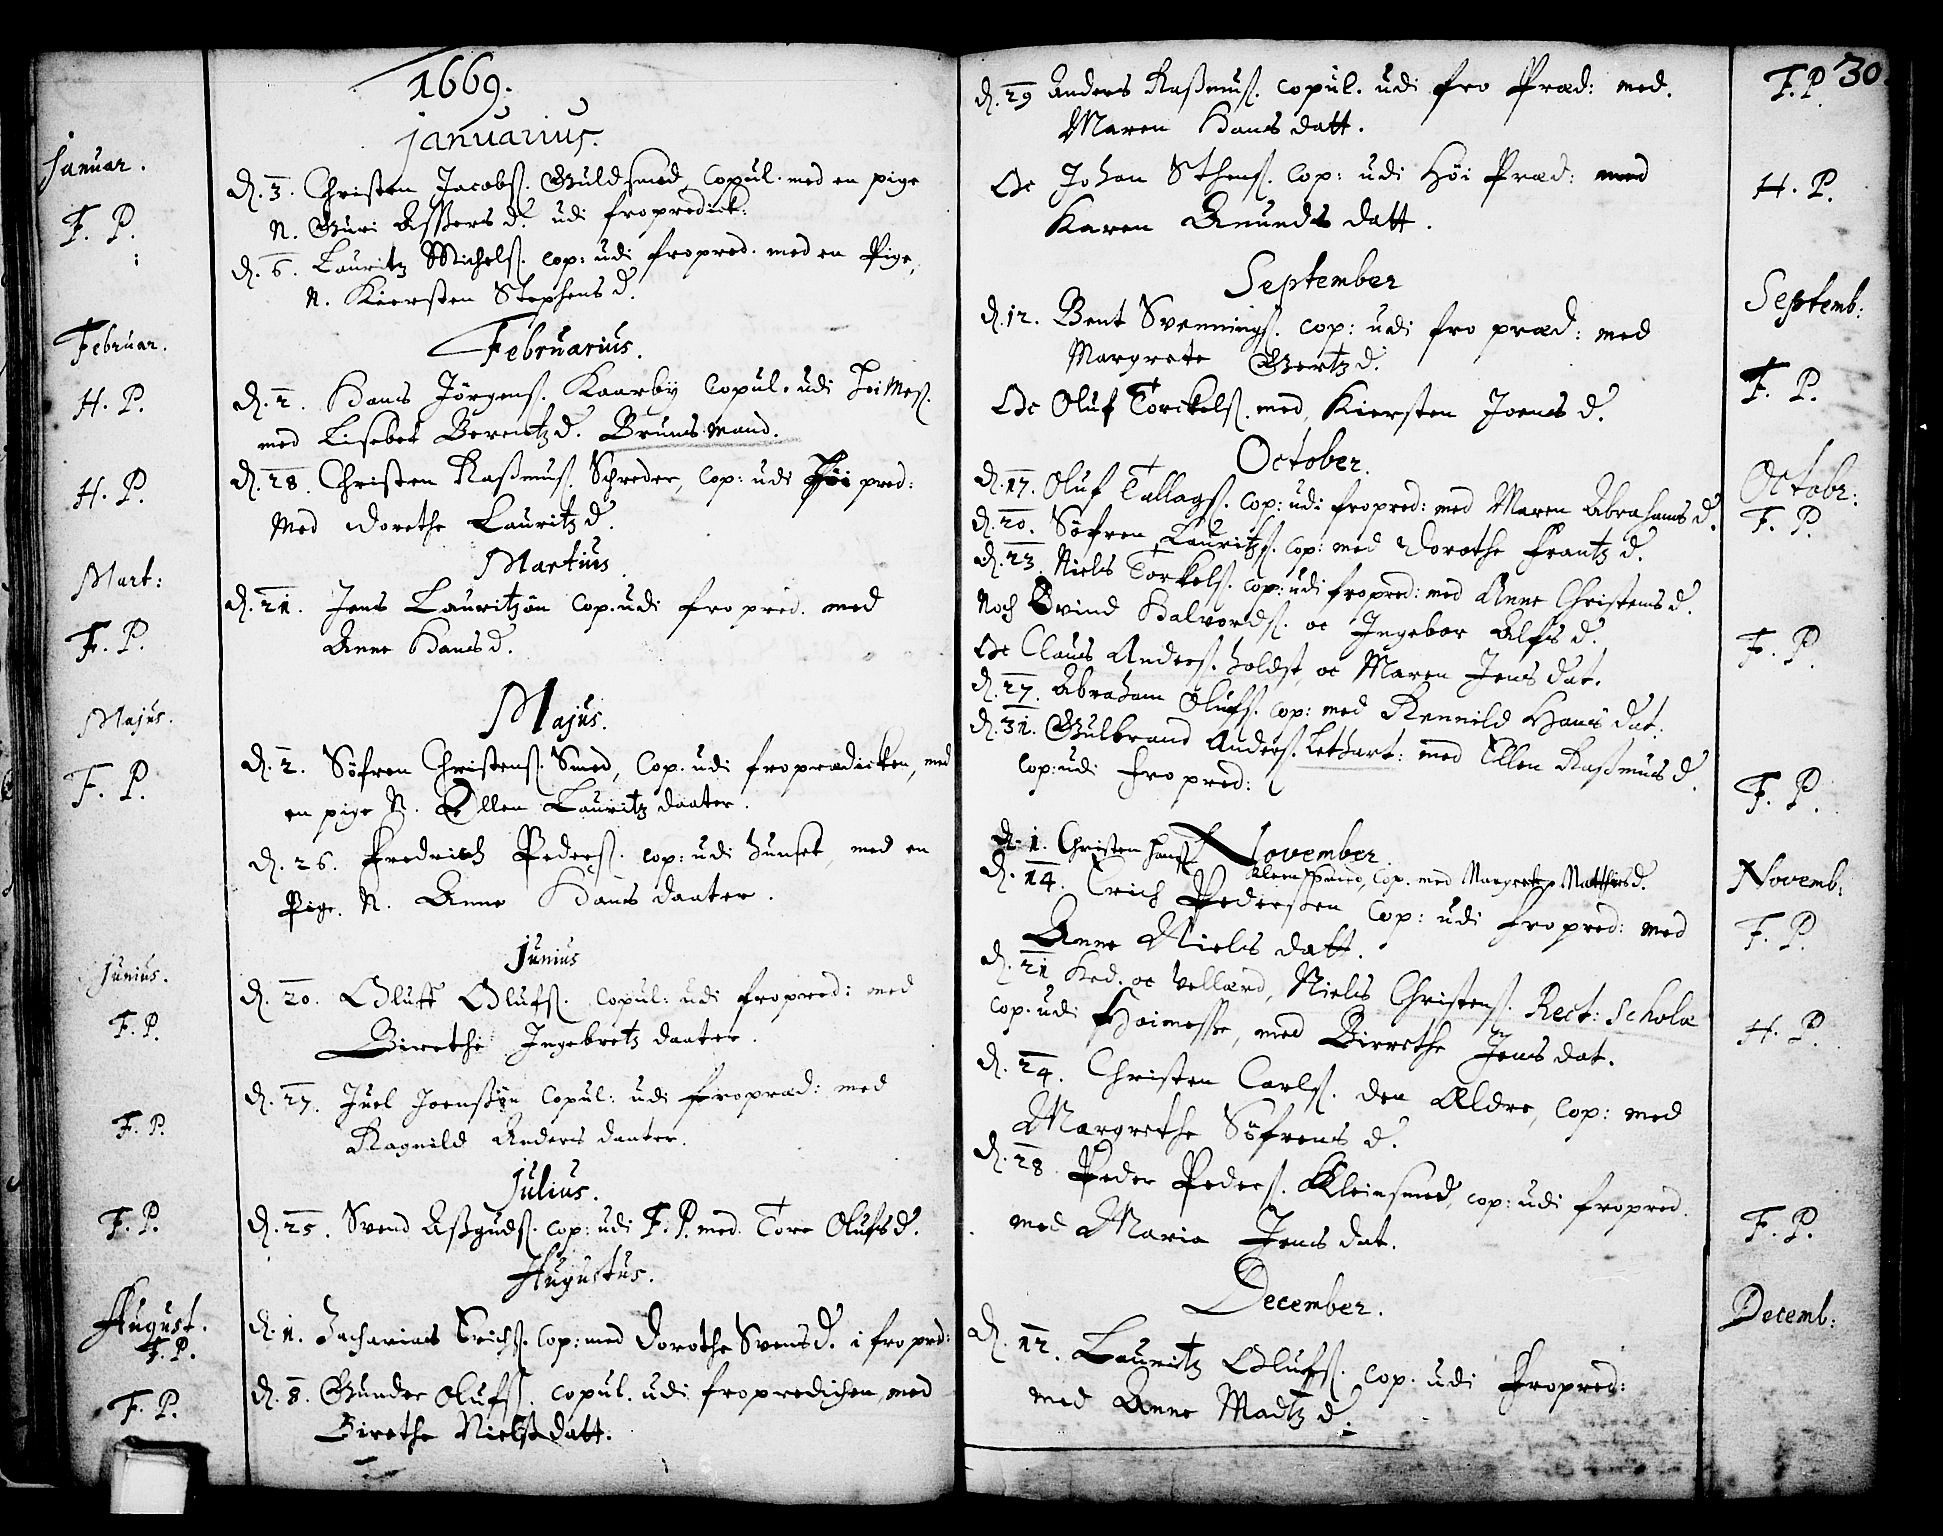 1669.
Januarius.
Januar.
d. 3. Christen Jacobs. Guldsmed, Copul. med en pige
N. Guri Assers d. udi fropredick:
F. P.
d. 6. Lauritz Michels. cop: udi fropred. med en Pige,
N. Kiersten Stephens d.
Februar.
Februarius.
H. P.
d. 2. Hans Jörgens. Kaarbÿ Copul. udi Höi Mes.
med Lisebet Berentz d. Bruns: mand.
H. P.
d. 28. Christen Rasmus. Schreder, Cop: udi Höi pred:
Med Dorethe Lauritz d.
Mart:
Martius
F. P.
d. 21. Jens Lauritzön Cop. udi fro pred. med
Anne Hans d.
Majus.
Majus.
F. P.
d. 2. Söfren Christens. Smed, Cop. udi froprædicken, med
en pige N. Ellen Lauritz daater.
d. 26. Fredrich Peders. cop: udi huuset, med en
Pige. N. Anne Hans daater.
Junius.
Junius
F. P.
d. 20. Oluff Olufs. Copul: udi fropred: med
Birethe Ingebretz daater.
F. P.
d. 27. Juel Joensøn Copul: udi fropræd: med
Ragnild Anders daater.
Julius.
F. P.
d. 25. Svend Asguds. Cop: udi F. P. med. Tore Olufs d.
Augustus.
August.
F. P.
d. 1. Zacharias Erichs. Cop: med Dorothe Svens d. i fro pred:
F. P.
d. 8. Gunder Olufs. Copul. udi fropredichen, med
Birethe Niels datt.
30.
d. 29 Anders Rasmus. Copul. udi fro Præd: med.
F. P.
Maren Hans datt.
Oc Johan Sthens. Cop: udi Höi Præd: med
H. P.
Karen Anunds datt.
September
Septemb:
d. 12. Bent Svennings. Cop: udi fro præd: med
Margrete Gertz d.
F. P.
Oc Oluf Torckels. med Kiersten Joens d.
October.
Octobr:
d. 17. Oluf Tallags. Cop: udi fropred: med Maren Abrahams d.
F. P.
d. 20. Söfren Lauritzs. Cop: med Dorothe Frantz d.
d. 23. Niels Torkels. Cop: udi fropred: med Anne Christens d.
Noch Övind Halvords. oc Ingebor Alfs d.
F. P.
Oc Claus Anders. holdst, oc Maren Jens dat.
d. 27. Abraham Olufs. Cop: med Rennild Hans dat.
d. 31. Gulbrand Anders. Lethart: med Ellen Rasmus d.
Cop: udi fro pred:
F. P.
November.
d. 1. Christen Hans. Kleensmed, Cop. med Margrethe Matthis d.
Novemb:
d. 14. Erich Pedersen, Cop: udi fropred: med
F. P.
Anne Niels datt.
d. 21 Hed. oc Vellærd, Niels Christens. Rect: Scholæ
Cop. udi Höimesse, med Birrethe Jens dat.
H. P.
d. 24. Christen Carls. den Ældre, Cop: med
Margrethe Söfrens d.
d. 28. Peder Peders. Kleinsmed, cop: udi fropred.
med Maria Jens dat.
F. P.
December.
Decemb:
d. 12. Lauritz Olufs. Cop. udi fropred:
med Anne Madtz d.